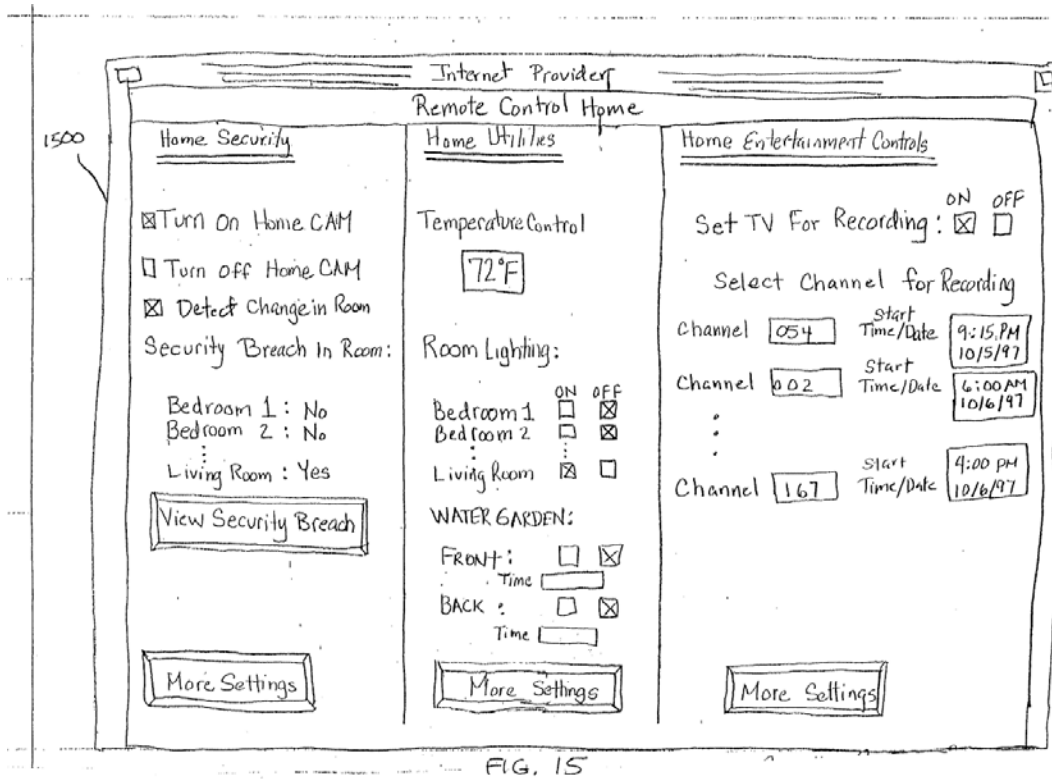 Internet Provider
Remote Control Home
1500
Home Security
☒ Turn On Home CAM
☐ Turn Off Home CAM
☒ Detect Change in Room
Security Breach In Room:
Bedroom 1: No
Bedroom 2: No
Living Room: Yes
View Security Breach
More Settings
Home Utilities
Temperature Control
72°F
Room Lighting:
ON OFF
Bedroom 1 ☐ ☒
Bedroom 2 ☐ ☒
Living Room ☒ ☐
WATER GARDEN:
FRONT: ☐ ☒
Time
BACK: ☐ ☒
Time
More Settings
Home Entertainment Controls
ON OFF
Set TV For Recording: ☒ ☐
Select Channel for Recording
Channel 054 Start Time/Date 9:15 PM 10/5/97
Channel 002 Start Time/Date 6:00 AM 10/6/97
Channel 167 Start Time/Date 4:00 PM 10/6/97
More Settings
FIG. 15